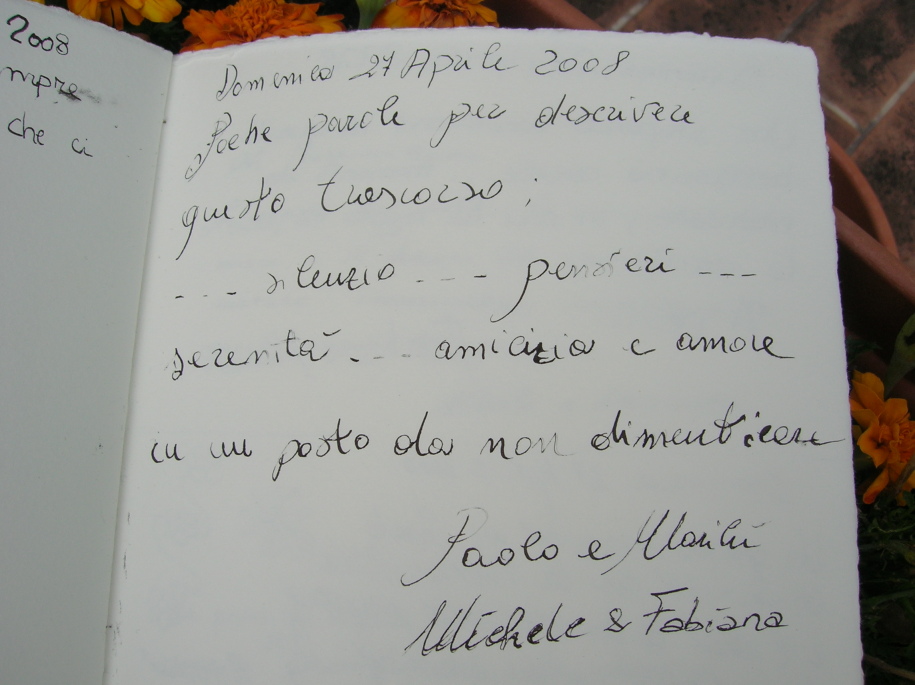 2008
mpre
che ci
Domenica 27 Aprile 2008
Poche parole per descrivere
questo trascorso ;
--- silenzio --- pensieri ---
serenità --- amicizia e amore
in un posto da non dimenticare
Paolo e Marilù
Michele & Fabiana